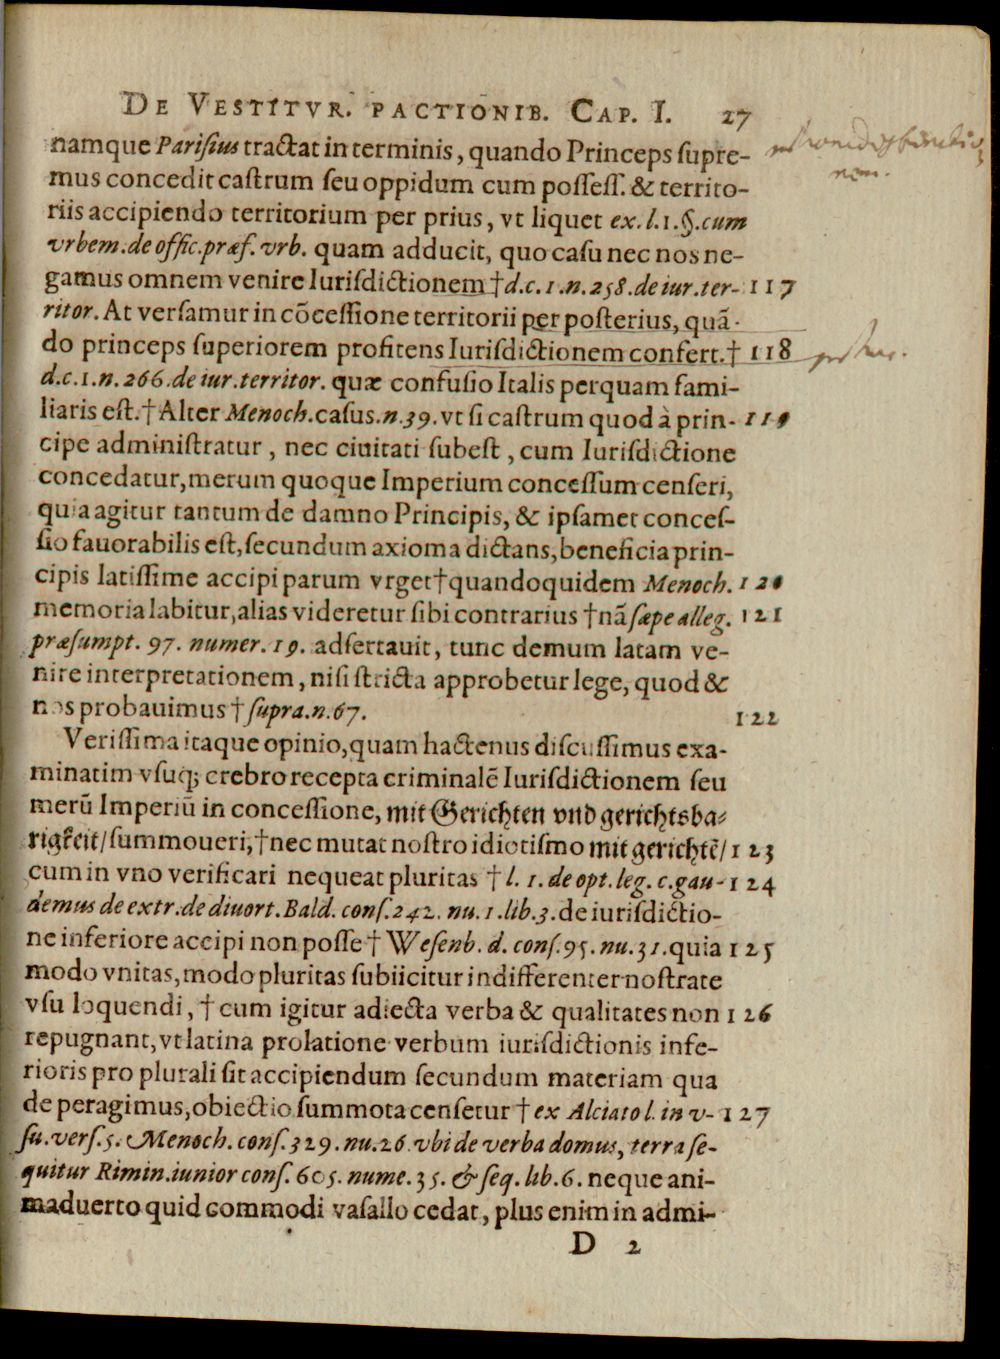 DE VESTITVR. PACTIONIB. CAP. I. 27
namque Pariſius tractat in terminis, quando Princeps ſupre-
mus concedit caſtrum ſeu oppidum cum poſſeſſ. & territo-
riis accipiendo territorium per prius, vt liquet ex. l. 1. §. cum
vrbem. de offic. præf. vrb. quam adducit, quo caſu nec nos ne-
gamus omnem venire Iurisdictionem † d. c. 1. n. 258. de iur. ter- 117
ritor. At verſamur in cõceſſione territorii per poſterius, quã-
do princeps ſuperiorem profitens Iurisdictionem confert. † 118
d. c. 1. n. 266. de iur. territor. quæ confuſio Italis perquam fami-
liaris eſt. † Alter Menoch. caſus. n. 39. vt ſi caſtrum quod à prin- 119
cipe adminiſtratur, nec ciuitati ſubeſt, cum Iurisdictione
concedatur, merum quoque Imperium conceſſum cenſeri,
quia agitur tantum de damno Principis, & ipſamet conceſ-
ſio fauorabilis eſt, ſecundum axioma dictans, beneficia prin-
cipis latiſſime accipi parum vrget † quandoquidem Menoch. 120
memoria labitur, alias videretur ſibi contrarius † nã ſæpe alleg. 121
præſumpt. 97. numer. 19. adſertauit, tunc demum latam ve-
nire interpretationem, niſi ſtricta approbetur lege, quod &
nos probauimus † ſupra. n. 67. 122
Veriſſima itaque opinio, quam hactenus diſcuſſimus exa-
minatim vſuq; crebro recepta criminalẽ Iurisdictionem ſeu
merũ Imperiũ in conceſſione, mit Gerichten vnd gerichtsba-
rigkeit/ ſummoueri, † nec mutat noſtro idiotiſmo mit gerichtẽ/ 123
cum in vno verificari nequeat pluritas † l. 1. de opt. leg. c. gau- 124
demus de extr. de diuort. Bald. conſ. 242. nu. 1. lib. 3. de iurisdictio-
ne inferiore accipi non poſſe † Weſenb. d. conſ. 95. nu. 31. quia 125
modo vnitas, modo pluritas ſubiicitur indifferenter noſtrate
vſu loquendi, † cum igitur adiecta verba & qualitates non 126
repugnant, vt latina prolatione verbum iurisdictionis infe-
rioris pro plurali ſit accipiendum ſecundum materiam qua
de peragimus, obiectio ſummota cenſetur † ex Alciato l. in v- 127
ſu. verſ. 5. Menoch. conſ. 329. nu. 26. vbi de verba domus, terra ſe-
quitur Rimin. iunior conſ. 605. nume. 35. & ſeq. lib. 6. neque ani-
maduerto quid commodi vaſallo cedat, plus enim in admi-
D 2